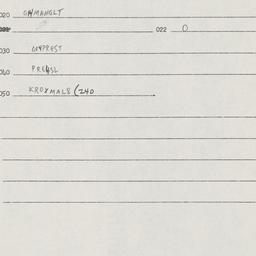 020 GAMANGLT
022 0
030 GAYPREST
040 PREASL
050 KROXMAL8 (240